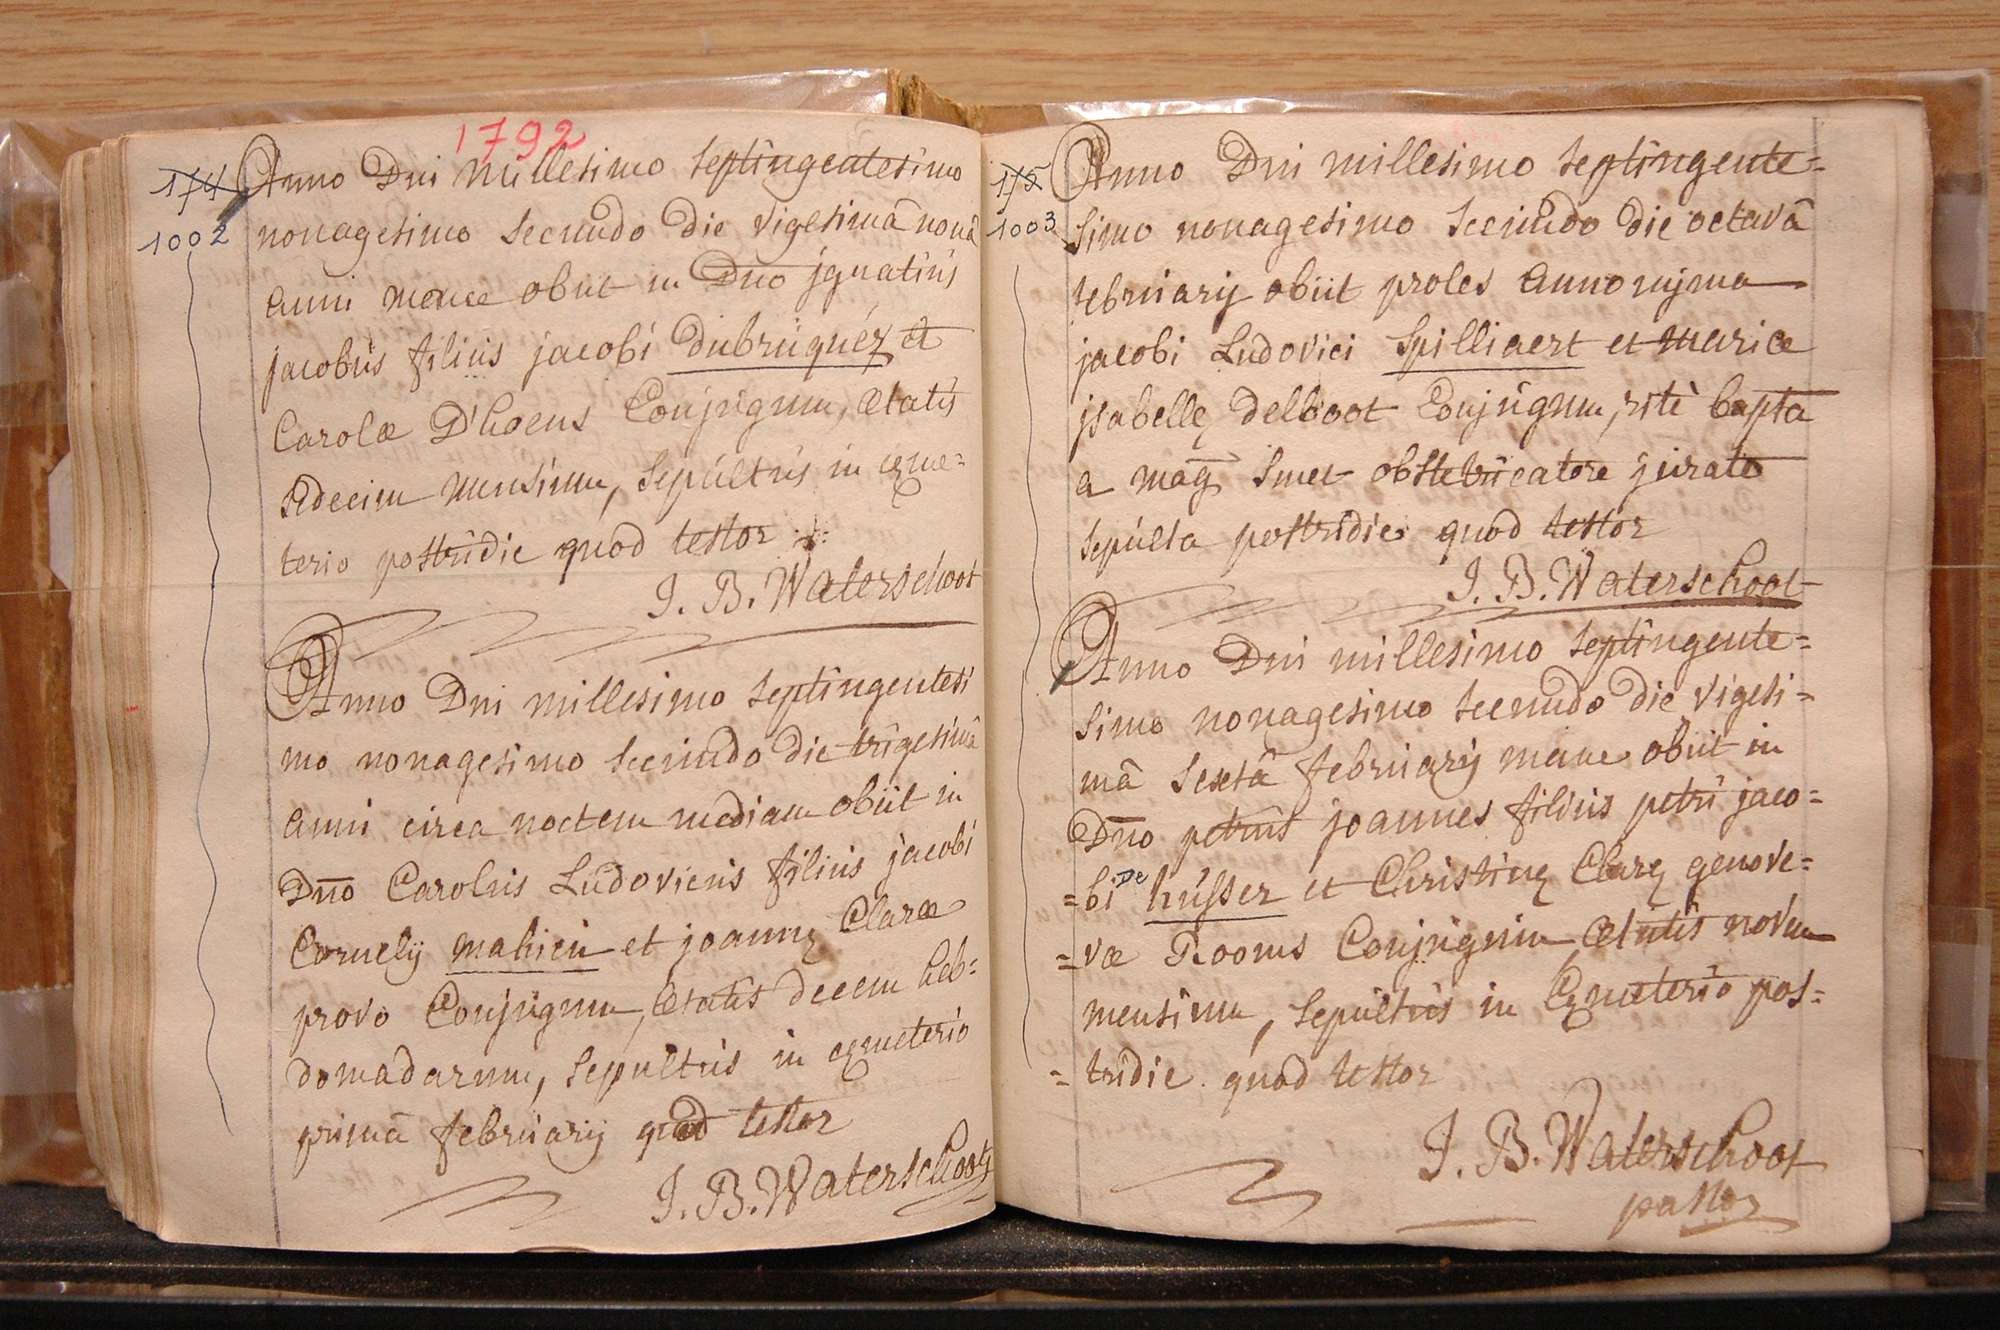 1792
174
1002
Anno Dni millesimo septingentesimo
nonagesimo secundo die vigesimâ nonâ
anni mane obiit in Dno jgnatius
jacobus filius jacobi dubruquéz et
Carolæ D'hoens Conjugum, ætatis
sedecim mensium, sepultus in cæme=
terio postridie quod testor
J. B. Waterschoot
Anno Dni millesimo septingentesi
mo nonagesimo secundo die trigesimâ
anni circa noctem mediam obiit in
Dno Carolus Ludovicus filius jacobi
Cornelij mahieu et joannę Claræ
provo Conjugum, ætatis decem heb=
domadarum, sepultus in cęmeterio
primâ februarij quod testor
J. B. Waterschoot
175
1003
Anno Dni millesimo septingente=
simo nonagesimo secundo die octavâ
februarij obiit proles annonijma
jacobi Ludovici Spilliaert et mariæ
jsabellę delboot Conjugum, ritè bapta
a mag Smet obstetricatore jurato
sepulta postridie quod testor
J. B. Waterschoot
Anno Dni millesimo septingente=
simo nonagesimo secundo die vigesi=
mâ sextâ februarij mane obiit in
Dno petrus joannes filius petri jaco=
=bi De hùsser et Christinę Clarę genove=
=væ Rooms Conjugum ætatis novem
mensium, sepultus in Cęmeterio pos=
=tridie quod testor
J. B. Waterschoot
pastor